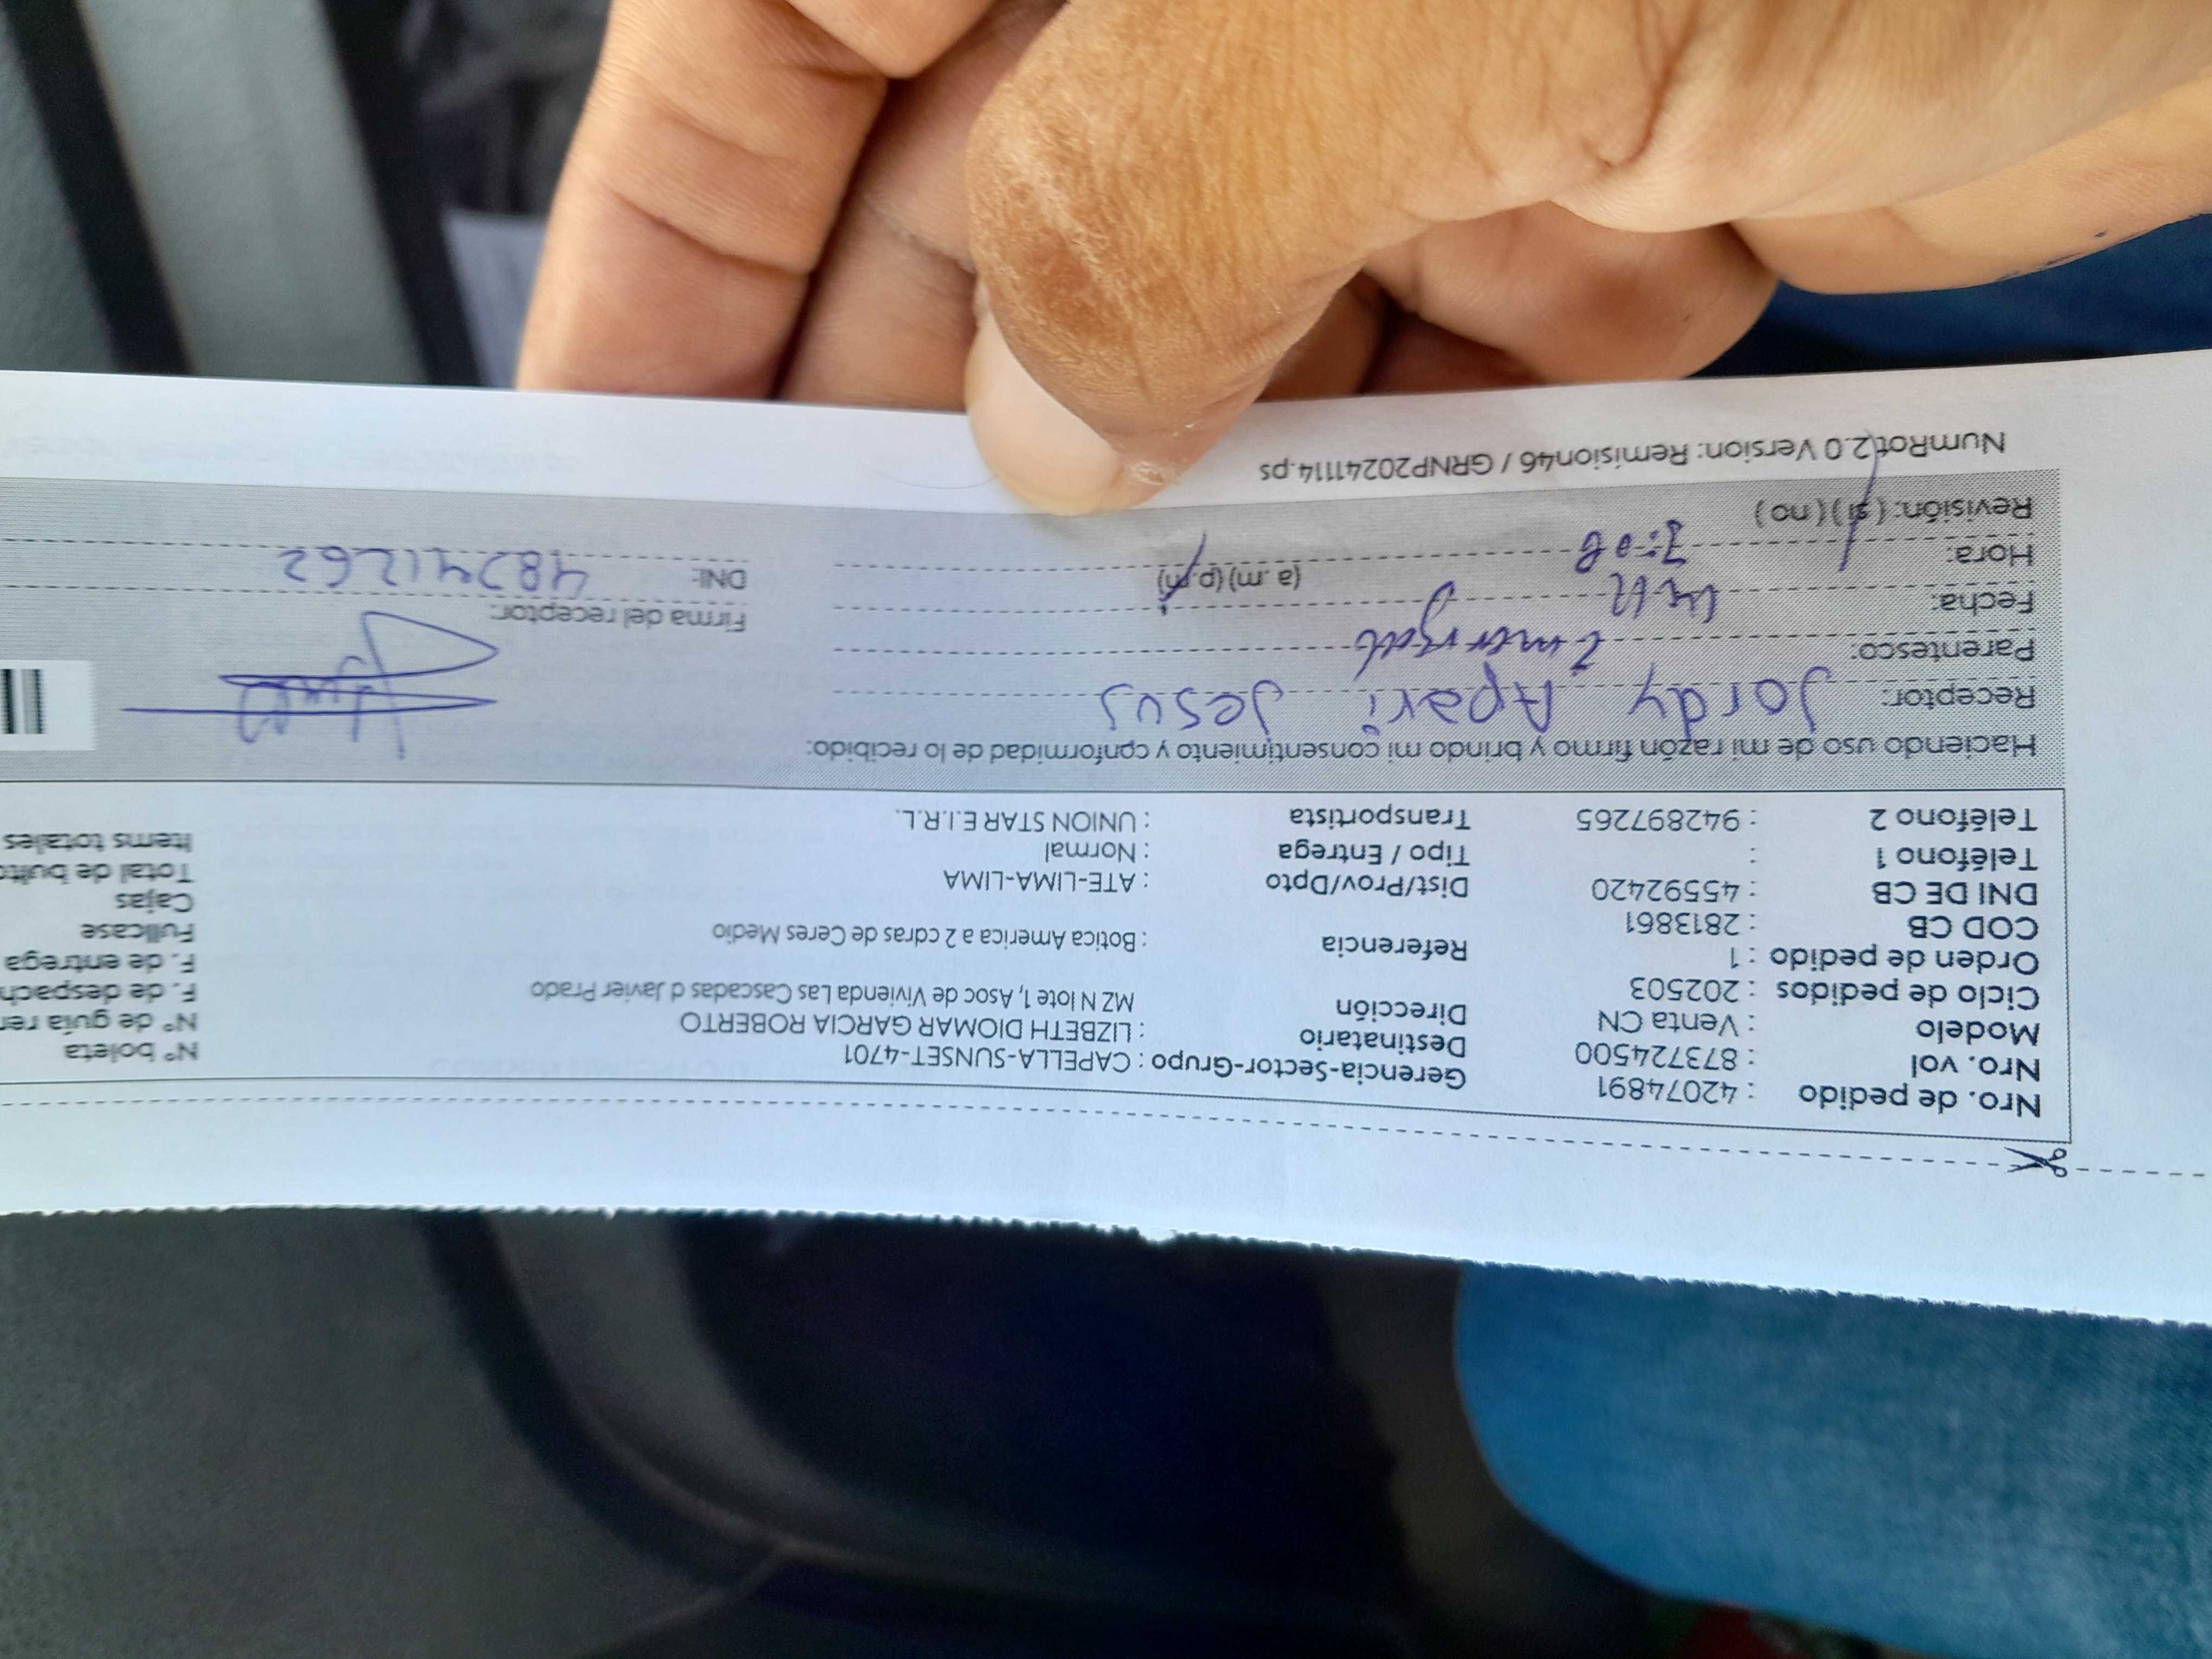 Nro. de pedido : 42074891 Gerencia-Sector-Grupo : CAPELLA-SUNSET-4701 Nº boleta
Nro. vol : 873724500 Destinatario : LIZBETH DIOMAR GARCIA ROBERTO Nº de guía
Modelo : Venta CN Dirección MZ N lote 1, Asoc de Vivienda Las Cascadas d Javier Prado F. de
Ciclo de pedidos : 202503 F. de entrega
Orden de pedido : 1 Referencia : Botica America a 2 cdras de Ceres Medio Fullcase
COD CB : 2813861 Cajas
DNI DE CB : 45592420 Dist/Prov/Dpto : ATE-LIMA-LIMA Total de
Teléfono 1 : Tipo / Entrega : Normal Items totales
Teléfono 2 : 942897265 Transportista : UNION STAR E.I.R.L.
Haciendo uso de mi razón firmo y brindo mi consentimiento y conformidad de lo recibido:
Receptor: Jordy Apari Jesus
Parentesco: Firma del receptor:
Fecha: (a .m) (p.m) DNI: 48241262
Hora:
Revisión: ( si ) ( no )
NumRot 2.0 Version: Remision46 / GRNP20241114.ps